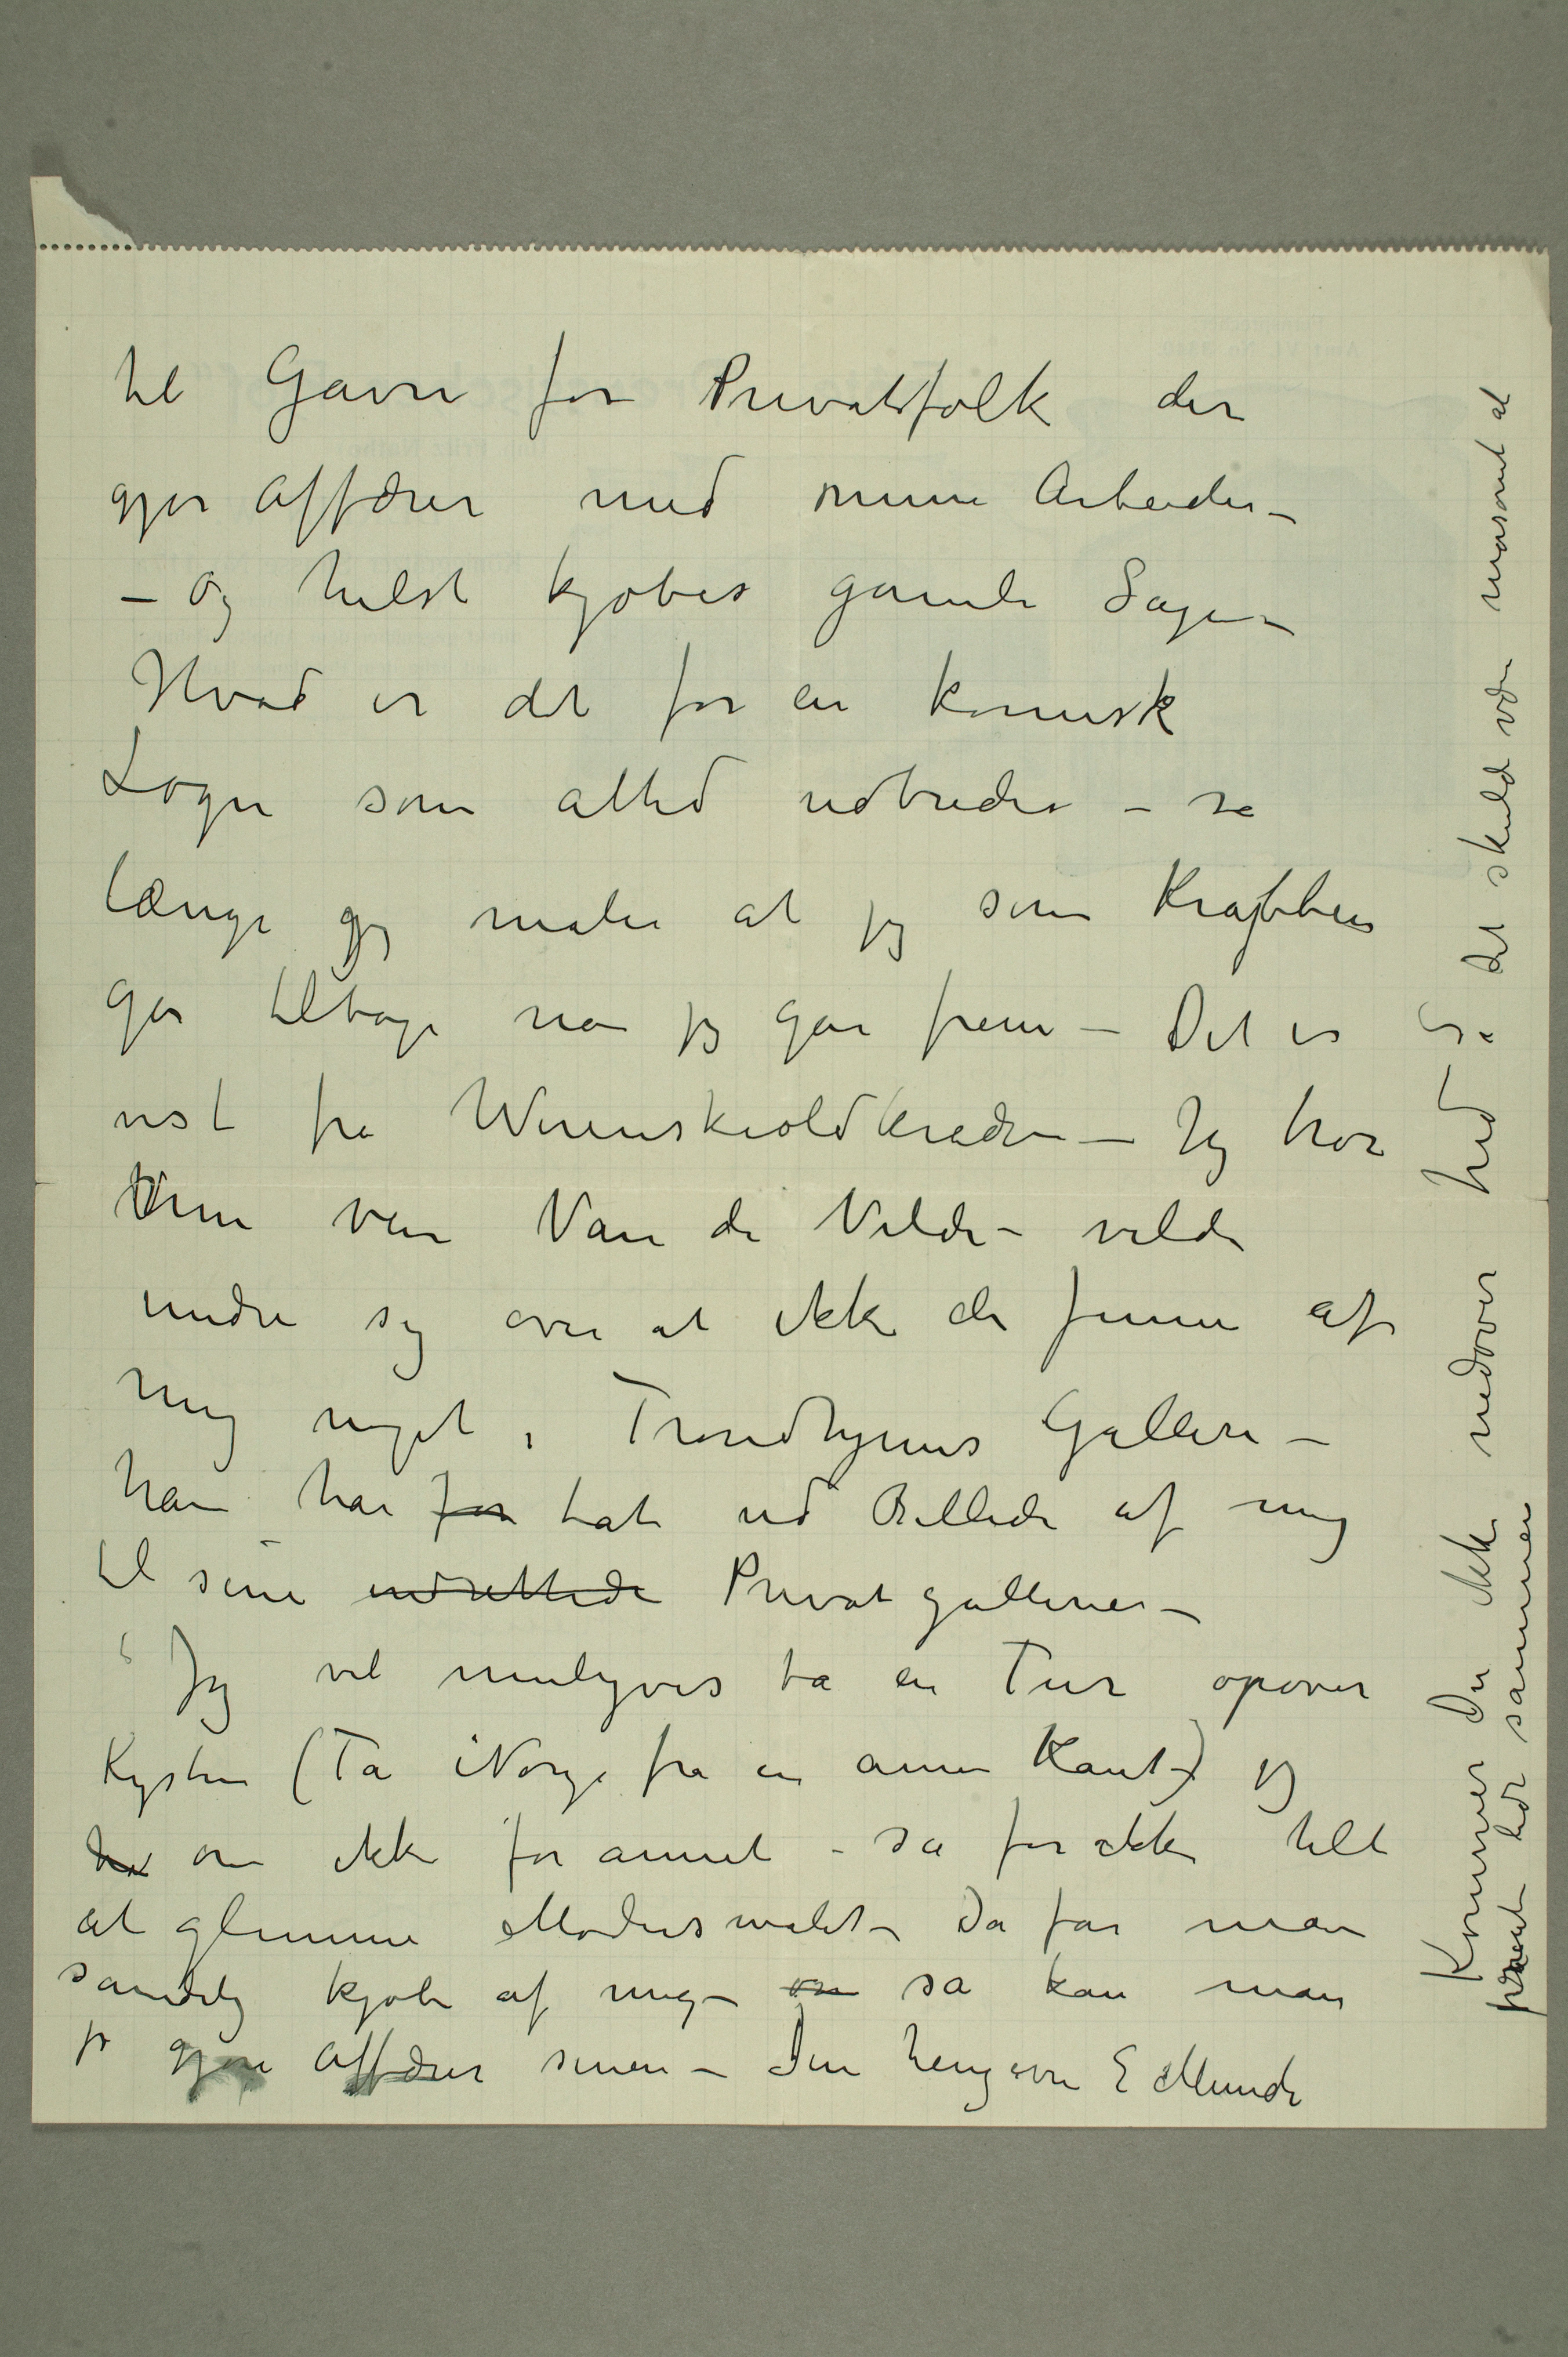 til Gavn for Privatfolk der
gjør Affærer med mine Arbeider –
– Og helst kjøbes gamle Sager –
Hvad er det for en komisk
Løgn som altid udbredes – så
længe jeg maler at jeg som Krabben
går tilbage når jeg går frem – Det er
vist fra Werenskioldkredsen – Jeg tror
min ven Van de Velde – vilde
undre sig over at ikke de finner af
mig noget i Trondhjems Galleri –
han har for tat ud Billeder af mig
til sine indrettede Privatgallerier –
Jeg vil muligvis ta en Tur opover
Kysten (Ta Norge fra en annen Kant) jeg
har om ikke for annet – så for ikke helt
at glemme Modersmålet – Da får man
sandelig kjøbe af mig – om så kan man
jo gjøre Affærer senen – Din hengivne E Munch
Kommer Du ikke nedover hid Så det skulde være morsomt at
prate lidt sammen